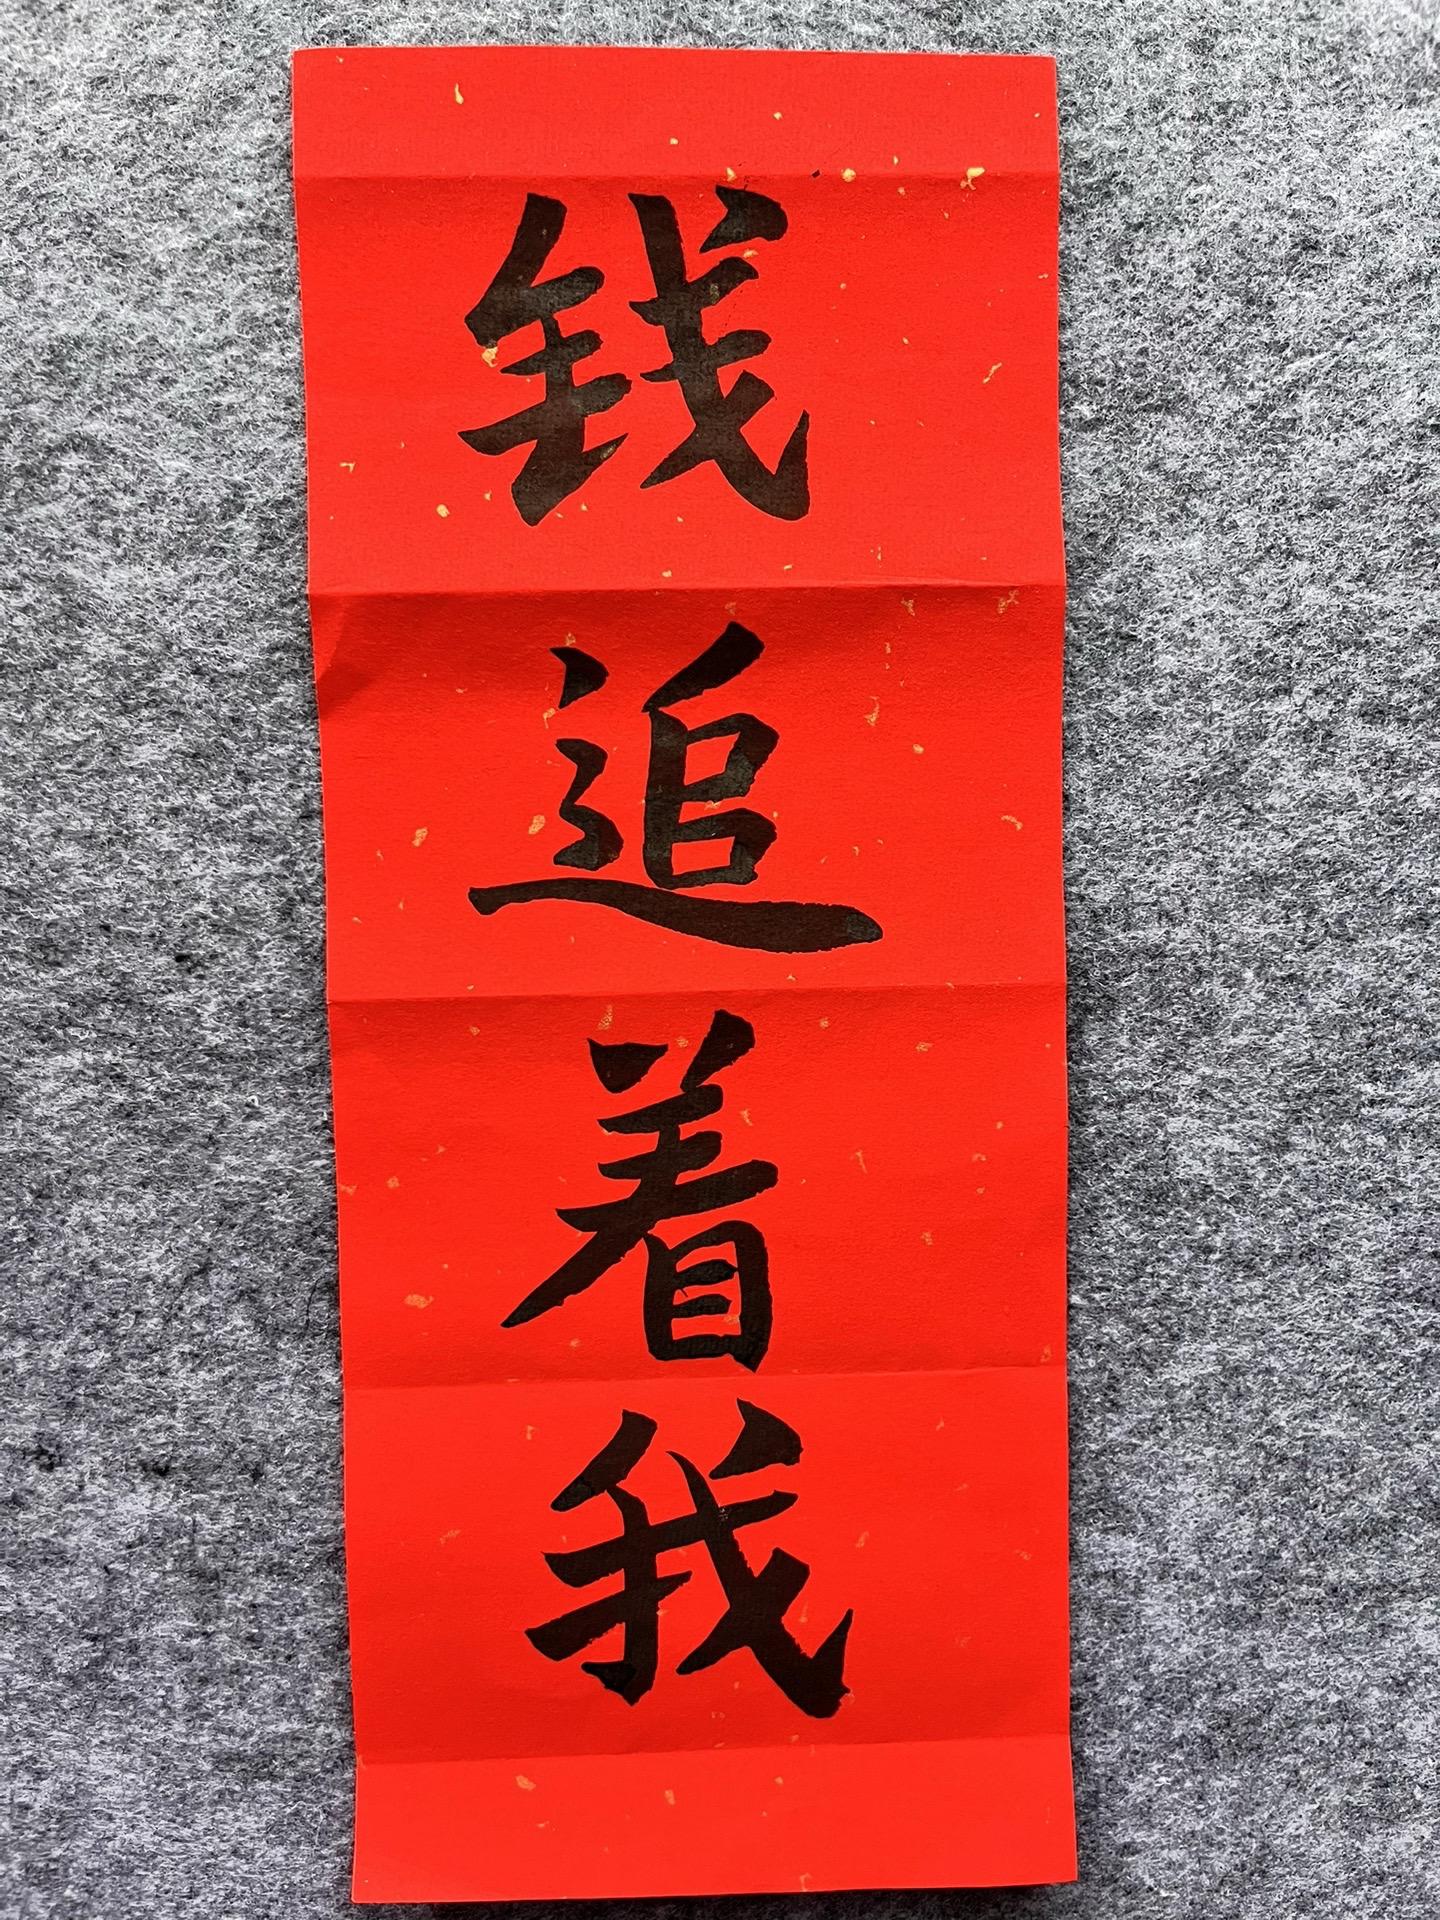 钱追着我